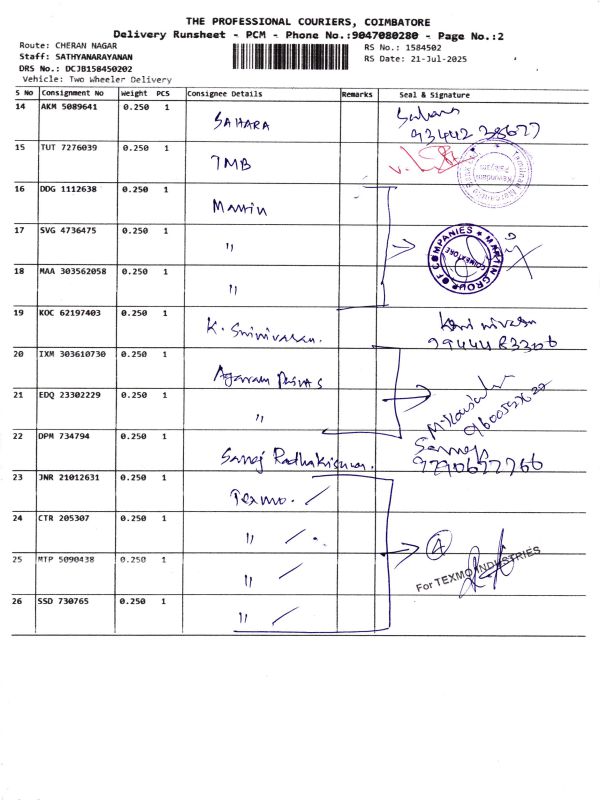 THE PROFESSIONAL COURIERS, COIMBATORE
Delivery Runsheet - PCM - Phone No.:9047080280 - Page No.:2
Route: CHERAN NAGAR
RS No.: 1584502
Staff: SATHYANARAYANAN
RS Date: 21-Jul-2025
DRS No.: DCJB158450202
Vehicle: Two Wheeler Delivery
S No Consignment No Weight PCS Consignee Details Remarks Seal & Signature
14 AKM 5089641 0.250 1 SAHARA
15 TUT 7276039 0.250 1 TMB
16 DDG 1112638 0.250 1 Martin
17 SVG 4736475 0.250 1 "
MARTIN GROUP OF COMPANIES
COIMBATORE
18 MAA 303562058 0.250 1 "
19 KOC 62197403 0.250 1 K. Srinivasan.
20 IXM 303610730 0.250 1 Agaram
21 EDQ 23302229 0.250 1 "
22 DPM 734794 0.250 1 Saroj Radhakrishnan.
23 JNR 21012631 0.250 1 Texmo.
24 CTR 205307 0.250 1 "
4
25 MTP 5090438 0.250 1 "
For TEXMO INDUSTRIES
26 SSD 730765 0.250 1 "